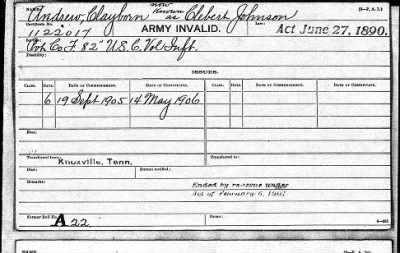 now
NAME: Andrew, Clayborn known as Clebert Johnson (3-F. A. J.)
Certificate No. ARMY INVALID. Law: Act June 27, 1890.
1122017
Service: Pvt Co F. 82" U.S.C. Vol Inft.
Disability:
ISSUES.
CLASS. RATE. DATE OF COMMENCEMENT. DATE OF CERTIFICATE. CLASS. RATE. DATE OF COMMENCEMENT. DATE OF CERTIFICATE.
6 19 Sept 1905 14 May 1906
Transferred from Transferred to:
Knoxville, Tenn.
Died: Death notified:
Remarks:
Ended by re-issue under
Act of February 6, 1907
Former Roll No. A 22 Home:
NAME